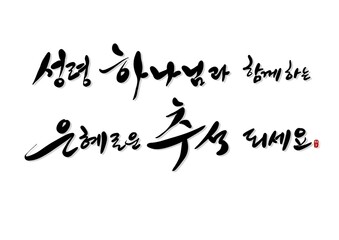 성령 하나님과 함께하는
은혜로운 추석 되세요